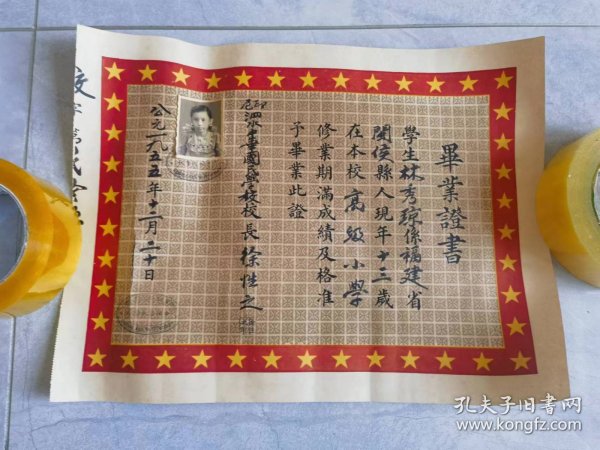 畢業證書
學生林秀琼係福建省
閩侯縣人現年十三歲
在本校高級小學
修業期滿成績及格准
予畢業此證
印尼
泗水中華國民學校校長徐性之
公元一九五五年十二月二十日
校字第
孔夫子旧书网
www.kongfz.com